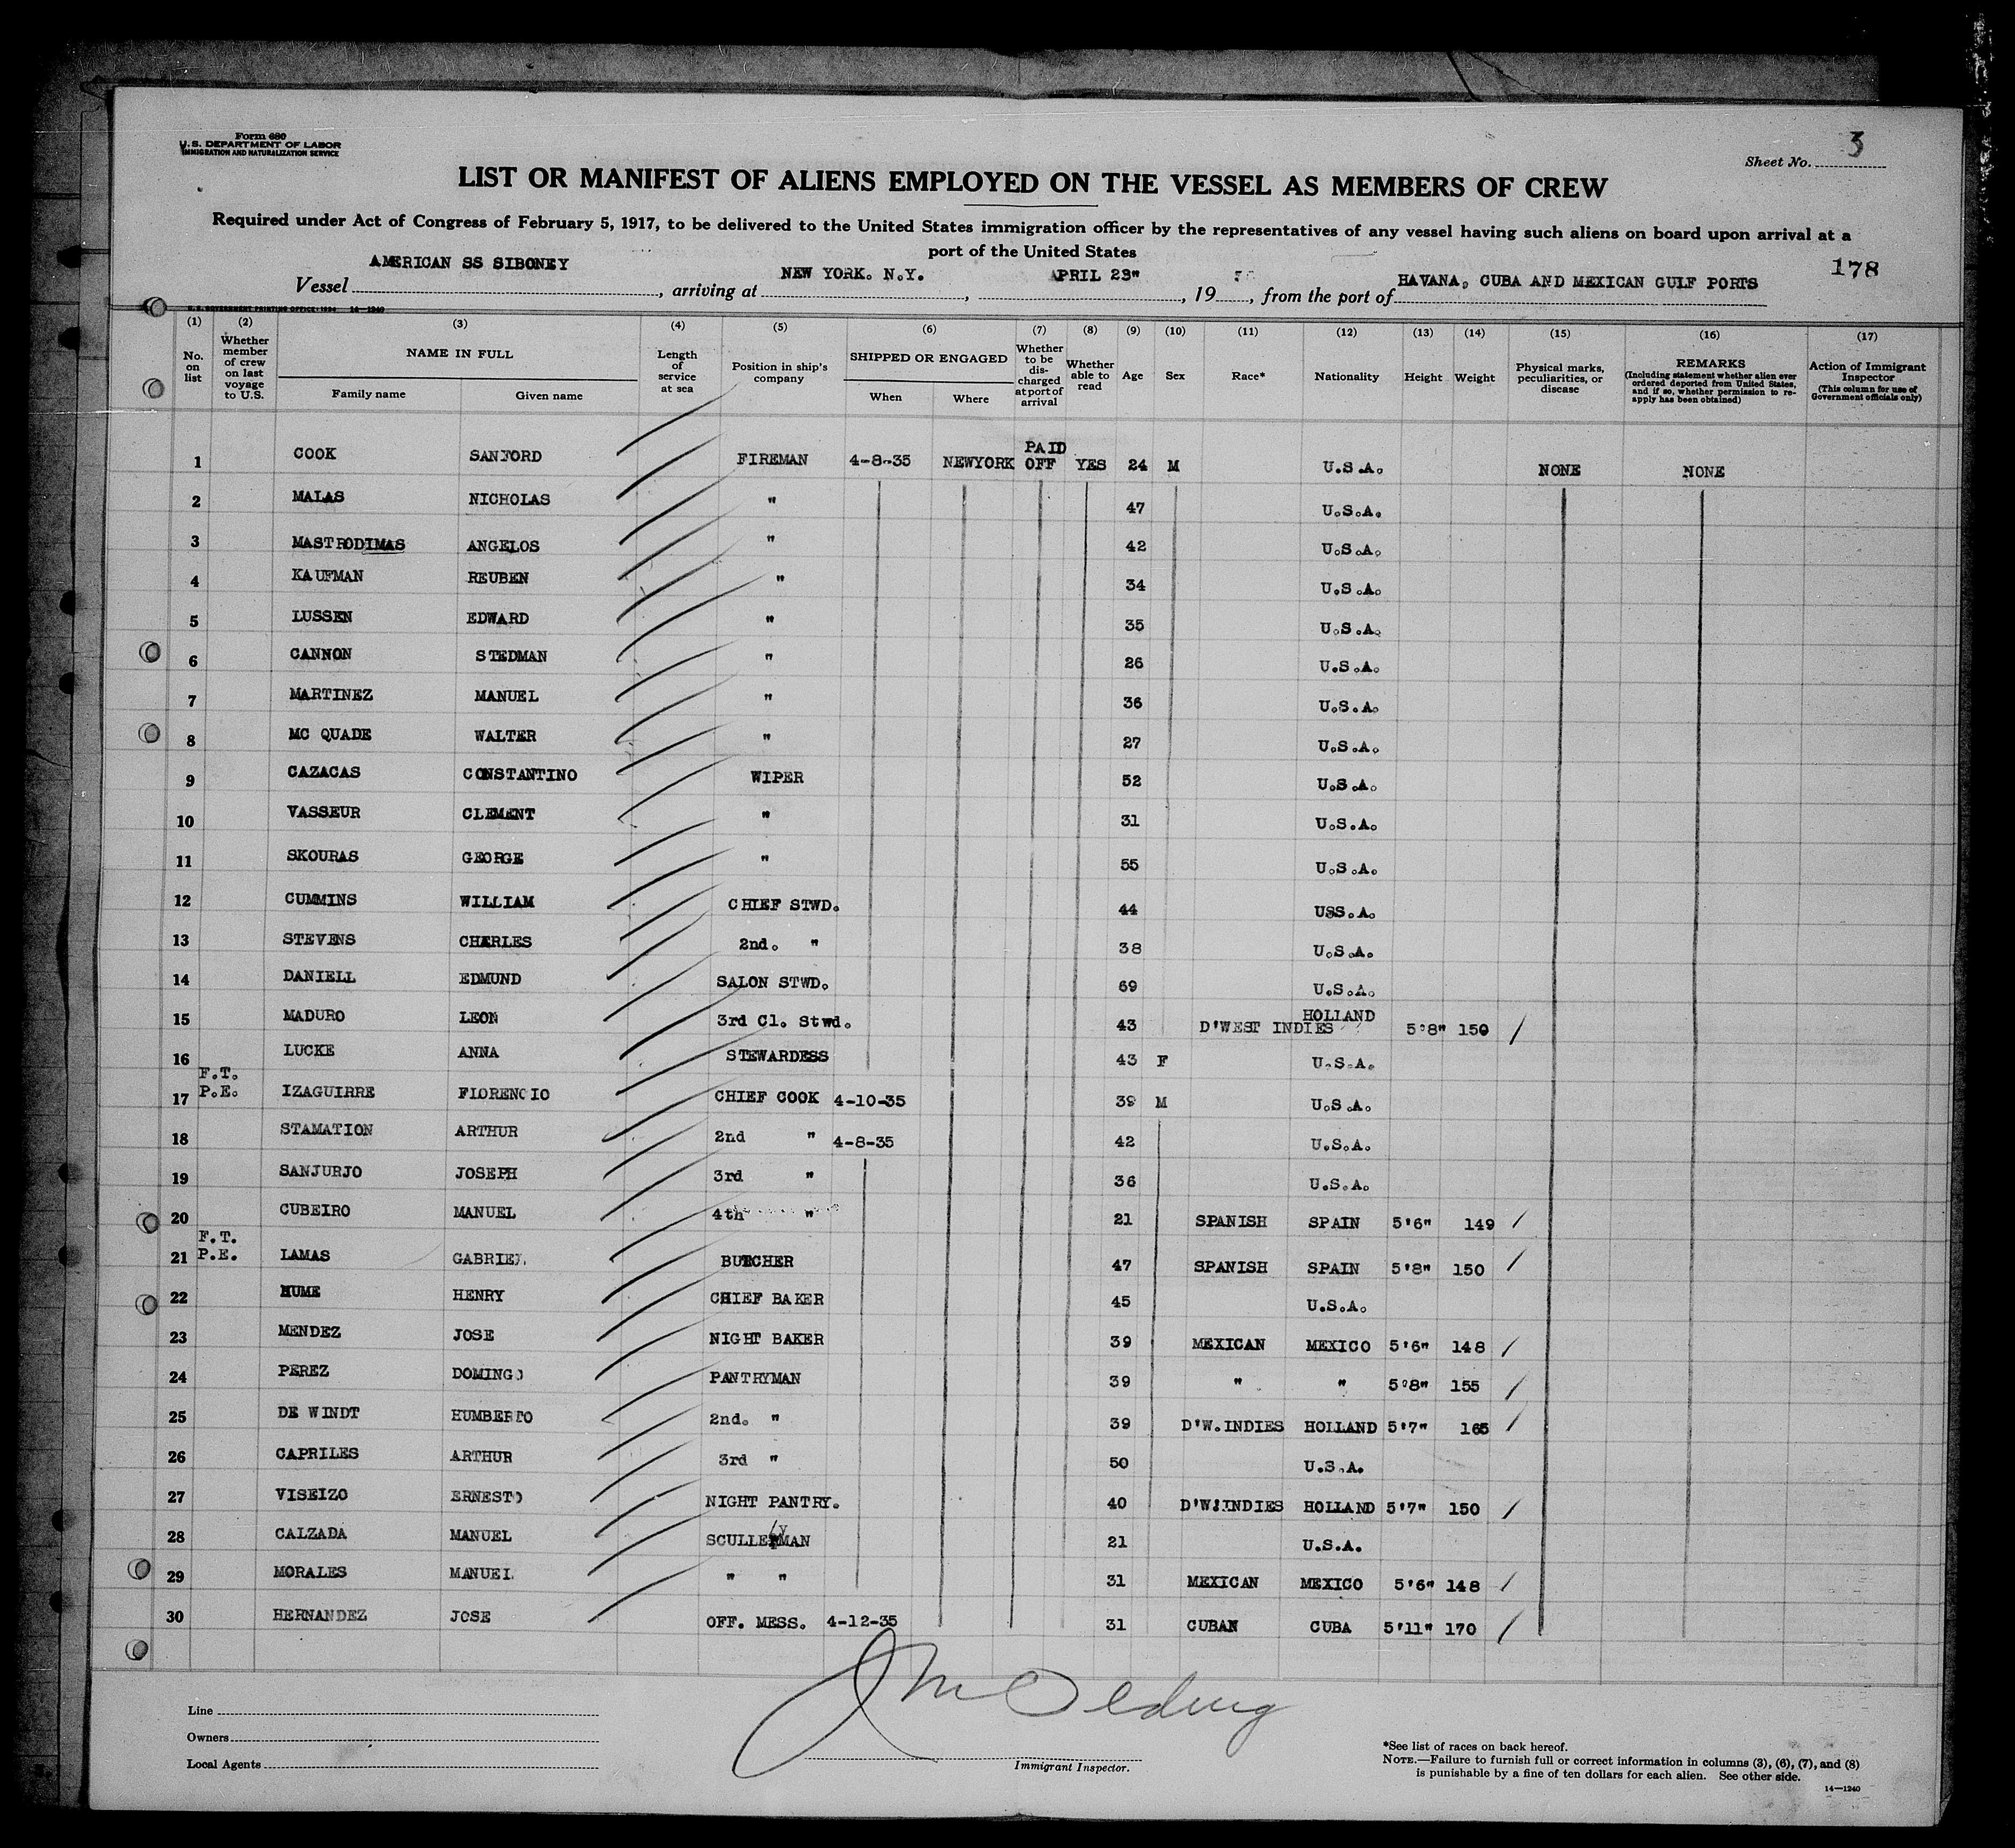 Form 680
U.S. DEPARTMENT OF LABOR
IMMIGRATION AND NATURALIZATION SERVICE
Sheet No. 3
LIST OR MANIFEST OF ALIENS EMPLOYED ON THE VESSEL AS MEMBERS OF CREW
Required under Act of Congress of February 5, 1917, to be delivered to the United States immigration officer by the representatives of any vessel having such aliens on board upon arrival at a
port of the United States
178
Vessel AMERICAN SS SIBONEY, arriving at NEW YORK. N.Y., APRIL 23", 19 , from the port of HAVANA, CUBA AND MEXICAN GULF PORTS
U.S. GOVERNMENT PRINTING OFFICE: 1934 14—1240
(1) (2) (3) (4) (5) (6) (7) (8) (9) (10) (11) (12) (13) (14) (15) (16) (17)
No. on list
Whether member of crew on last voyage to U.S.
NAME IN FULL
Family name Given name
Length of service at sea
Position in ship's company
SHIPPED OR ENGAGED
When Where
Whether to be discharged at port of arrival
Whether able to read
Age Sex Race* Nationality Height Weight
Physical marks, peculiarities, or disease
REMARKS
(Including statement whether alien ever ordered deported from United States, and if so, whether permission to re-apply has been obtained)
Action of Immigrant Inspector
(This column for use of Government officials only)
1 COOK SANFORD FIREMAN 4-8-35 NEWYORK PAID OFF YES 24 M U.S.A. NONE NONE
2 MALAS NICHOLAS " 47 U.S.A.
3 MASTRODIMAS ANGELOS " 42 U.S.A.
4 KAUFMAN REUBEN " 34 U.S.A.
5 LUSSEN EDWARD " 35 U.S.A.
6 CANNON STEDMAN " 26 U.S.A.
7 MARTINEZ MANUEL " 36 U.S.A.
8 MC QUADE WALTER " 27 U.S.A.
9 CAZACAS CONSTANTINO WIPER 52 U.S.A.
10 VASSEUR CLEMENT " 31 U.S.A.
11 SKOURAS GEORGE " 55 U.S.A.
12 CUMMINS WILLIAM CHIEF STWD. 44 USS.A.
13 STEVENS CHARLES 2nd. " 38 U.S.A.
14 DANIELL EDMUND SALON STWD. 69 U.S.A.
15 MADURO LEON 3rd Cl. Stwd. 43 D'WEST INDIES HOLLAND 5'8" 150 /
16 LUCKE ANNA STEWARDESS 43 F U.S.A.
17 F.T. P.E. IZAGUIRRE FLORENCIO CHIEF COOK 4-10-35 39 M U.S.A.
18 STAMATION ARTHUR 2nd " 4-8-35 42 U.S.A.
19 SANJURJO JOSEPH 3rd " 36 U.S.A.
20 CUBEIRO MANUEL 4th " 21 SPANISH SPAIN 5'6" 149 /
21 F.T. P.E. LAMAS GABRIEL BUTCHER 47 SPANISH SPAIN 5'8" 150 /
22 HUME HENRY CHIEF BAKER 45 U.S.A.
23 MENDEZ JOSE NIGHT BAKER 39 MEXICAN MEXICO 5'6" 148 /
24 PEREZ DOMINGO PANTRYMAN 39 " " 5'8" 155 /
25 DE WINDT HUMBERTO 2nd. " 39 D'W.INDIES HOLLAND 5'7" 165 /
26 CAPRILES ARTHUR 3rd " 50 U.S.A.
27 VISEIZO ERNESTO NIGHT PANTRY. 40 D'W.INDIES HOLLAND 5'7" 150 /
28 CALZADA MANUEL SCULLERYMAN 21 U.S.A.
29 MORALES MANUEL " " 31 MEXICAN MEXICO 5'6" 148 /
30 HERNANDEZ JOSE OFF. MESS. 4-12-35 31 CUBAN CUBA 5'11" 170 /
Line
Owners
Local Agents
Immigrant Inspector.
*See list of races on back hereof.
NOTE.—Failure to furnish full or correct information in columns (3), (6), (7), and (8)
is punishable by a fine of ten dollars for each alien. See other side.
14—1240